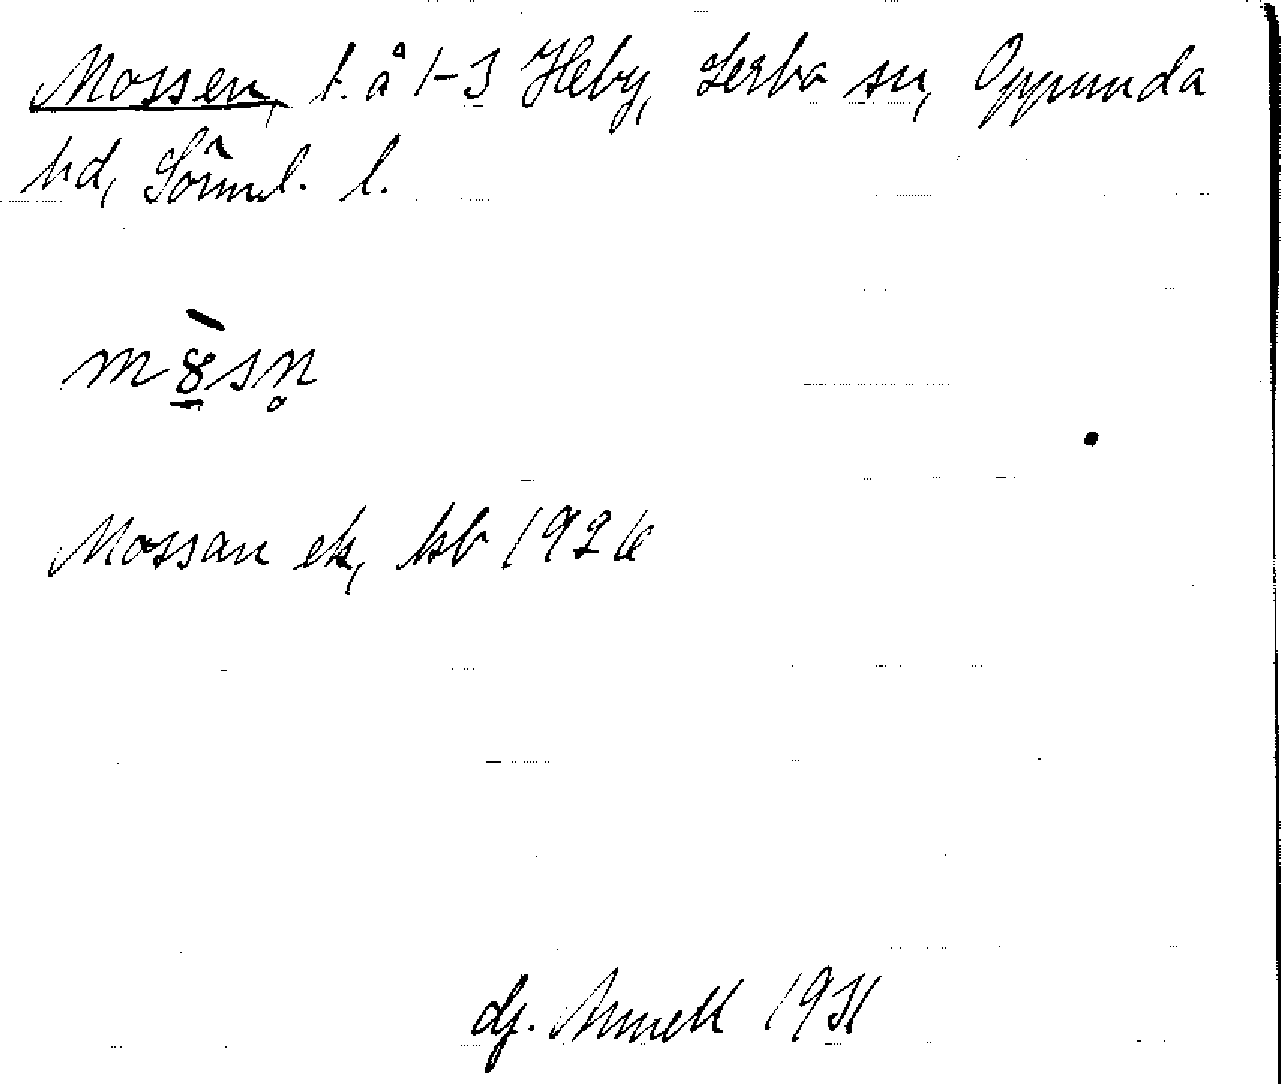 Mossen, t. å 1-3 Heby, Lerbo sn, Oppunda
hd, Sörml. l.
mò̲sn̥
Mossan ek, kb 1926
Gj. Annell 1931